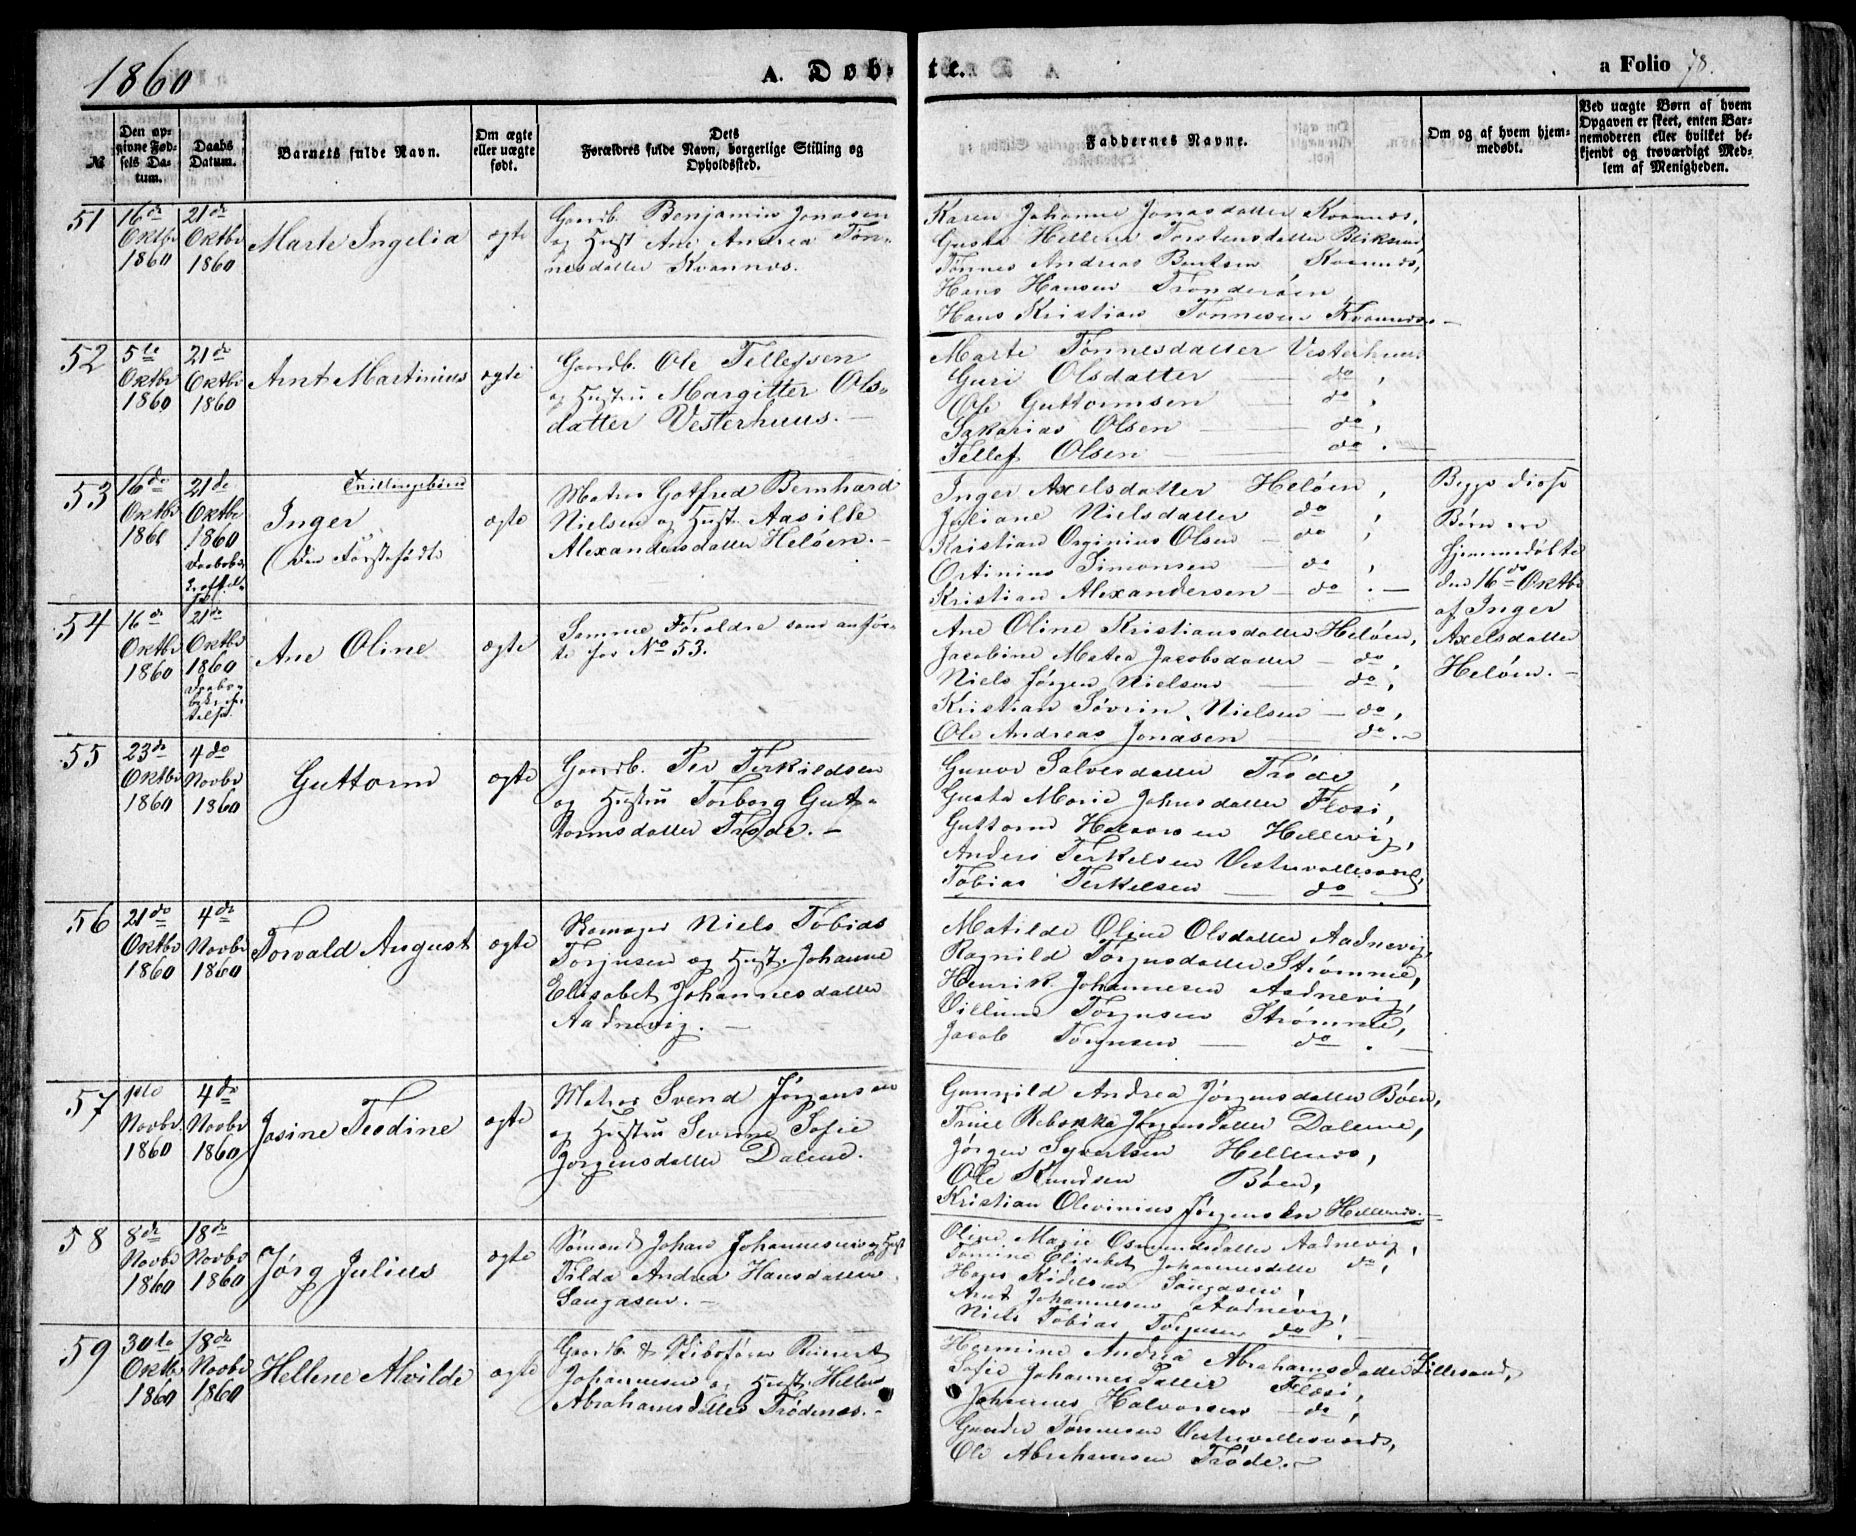 1860
A. Døb-
te.
a Folio 78.
№
Den op-
givne Fød-
sels Da-
tum.
Daabs
Datum.
Barnets fulde Navn.
Om ægte
eller uægte
født.
Dets
Forældres fulde Navn, borgerlige Stilling og
Opholdssted.
Faddernes Navne.
Om og af hvem hjem-
medøbt.
Ved uægte Børn af hvem
Opgaven er skeet, enten Bar-
nemoderen eller hvilket be-
kjendt og troværdigt Med-
lem af Menigheden.
51
16de
Oktbr
1860
21de
Oktbr
1860
Marte Ingelia
ægte
Gaardb. Benjamin Jonasen
og Hust. Ane Andrea Tøn-
nesdatter Kvannes.
Karen Johanne Jonasdatter Kvannes,
Gusta Hellene Torstensdatter
Tønnes Andreas Bentsen Kvannes,
Hans Hansen Trønderøen
Hans Kristian Tønnesen Kvannes.
52
5te
Oktbr
1860
21de
Oktbr
1860
Arnt Martinius
ægte
Gaardb. Ole Tellefsen
og Hustru Margitter Ols-
datter Vesterhuus.
Marte Tønnesdatter Vesterhuus
Guri Olsdatter do,
Ole Guttormsen do,
Sakarias Olsen do,
Tellef Olsen do.
53
16de
Oktbr
1860
21de
Oktbr
1860
Tvillingebørn
Inger
(Den Førstefødte
ægte
Matros Gotfred Bernhard
Nielsen og Hust. Aasille
Alexandersdatter Heløen.
Inger Axelsdatter Heløen,
Juliane Nielsdatter do,
Kristian Orginius Olsen do,
Ortinius Simonsen do,
Kristian Alexandersen do.
Begge disse
Børn ere
hjemmedøbte
den 16de Oktbr
af Inger
Axelsdatter
Heløen.
54
16de
Oktbr
1860
21de
Oktbr
1860
Ane Oline
ægte
Samme Forældre som anfør-
te for No 53.
Ane Oline Kristiansdatter Heløen,
Jacobine Matea Jacobsdatter do,
Niels Jørgen Nielsen do,
Kristian Søvrin Nielsen do,
Ole Andreas Jonasen do.
55
23de
Oktbr
1860
4de
Novbr
1860
Guttorm
ægte
Gaardb. Per Terkildsen
og Hustru Torborg Gut-
tormsdatter Trøde.
Gunor Salvesdatter Trøde,
Gusta Marie Johnsdatter Flosi,
Guttorm Halvorsen Hellevig,
Anders Terkelsen Vestrevallesverd,
Tobias Terkelsen do.
56
21de
Oktbr
1860
4de
Novbr
1860
Torvald August
ægte
Skomager Niels Tobias
Torjusen og Hust. Johanne
Elisabet Johannesdatter
Aadnevig.
Matilde Oline Olsdatter Aadnevig,
Ragnild Torjusdatter Strømme,
Henrik Johannesen Aadnevig,
Villum Torjusen Strømme,
Jacob Torjusen do.
57
1ste
Novbr
1860
4de
Novbr
1860
Josine Tødine
ægte
Matros Svend Jørgensen
og Hustru Severine Sofie
Jørgensdatter Dalene.
Gunvild Andrea Jørgensdatter Bøen,
Trine Rebekka Jørgensdatter Dalene,
Jørgen Syvertsen Hellenes,
Ole Knudsen Bøen,
Kristian Olevinius Jørgensen Hellenes.
58
8de
Novbr
1860
18de
Novbr
1860
Jørg Julius
ægte
Sømand Johan Johannesen og Hust
Tilda Andrea Hansdatter
Saugasen.
Oline Marie Osmundsdatter Aadnevig,
Tomine Elisabet Johannesdatter do,
Hans Kidelsen Saugasen,
Arnt Johannesen Aadnevig,
Niels Tobias Torjusen do.
59
30te
Oktbr
1860
18de
Novbr
1860
Hellene Alvilde
ægte
Gaardb. & Skibsfører Reinert
Johannesen og Hust. Hellene
Abrahamsdatter Trødenes.
Hermine Andrea Abrahamsdatter Lillesand,
Sofie Johannesdatter Flosi,
Johannes Halvorsen do,
Gunder Tønnesen Vestrevallesverd,
Ole Abrahamsen Trøde.